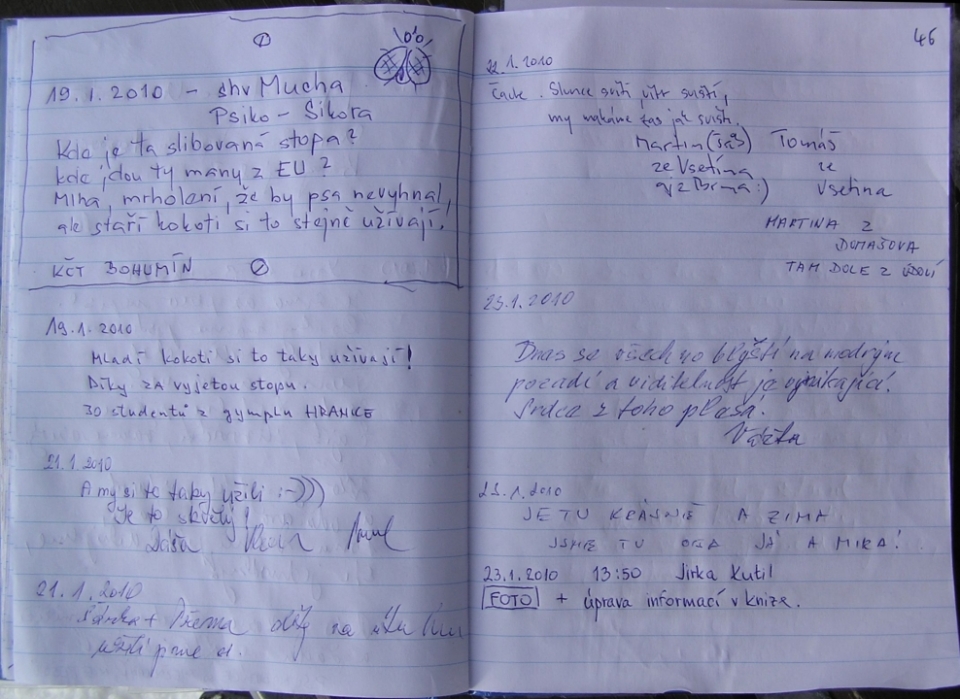 19.1.2010 - shv Mucha
Psiko - Sikora
Kde je ta slibovaná stopa?
kde jdou ty many z EU?
Mlha, mrholení, že by psa nevyhnal,
ale staří kokoti si to stejně užívají!
KČT BOHUMÍN
19.1.2010
Mladí kokoti si to taky užívají!
Díky za vyjetou stopu.
30 studentů z gymplu HRANICE
21.1.2010
A my si to taky užili :-)))
Je to skvělý!
Dáša
21.1.2010
Šárka +
na
užili jsme
46
22.1.2010
Slunce svítí, vítr sviští,
my makáme tas jak svišti.
Martin (Šaš) Tomáš
ze Vsetína ze
a z Brna :) Vsetína
MARTINA Z
DOMAŠOVA
TAM DOLE Z ÚDOLÍ
23.1.2010
Dnes se všechno blyští na modrým
pozadí a viditelnost je vynikající.
Srdce z toho plesá!
23.1.2010
JE TU KRÁSNĚ A ZIMA
JSME TU OBA JÁ A MIRA!
23.1.2010 13:50 Jirka Kutil
FOTO + úprava informací v knize.